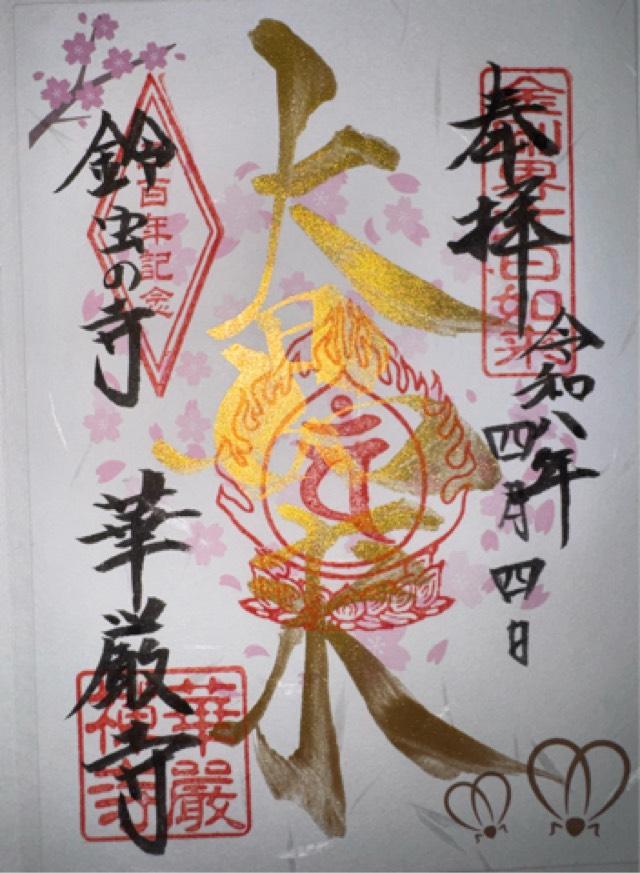 奉拝
金剛界大日如来
令和八年
四月四日
大日如来
鈴虫の寺
百年記念
華厳寺
華厳禅寺